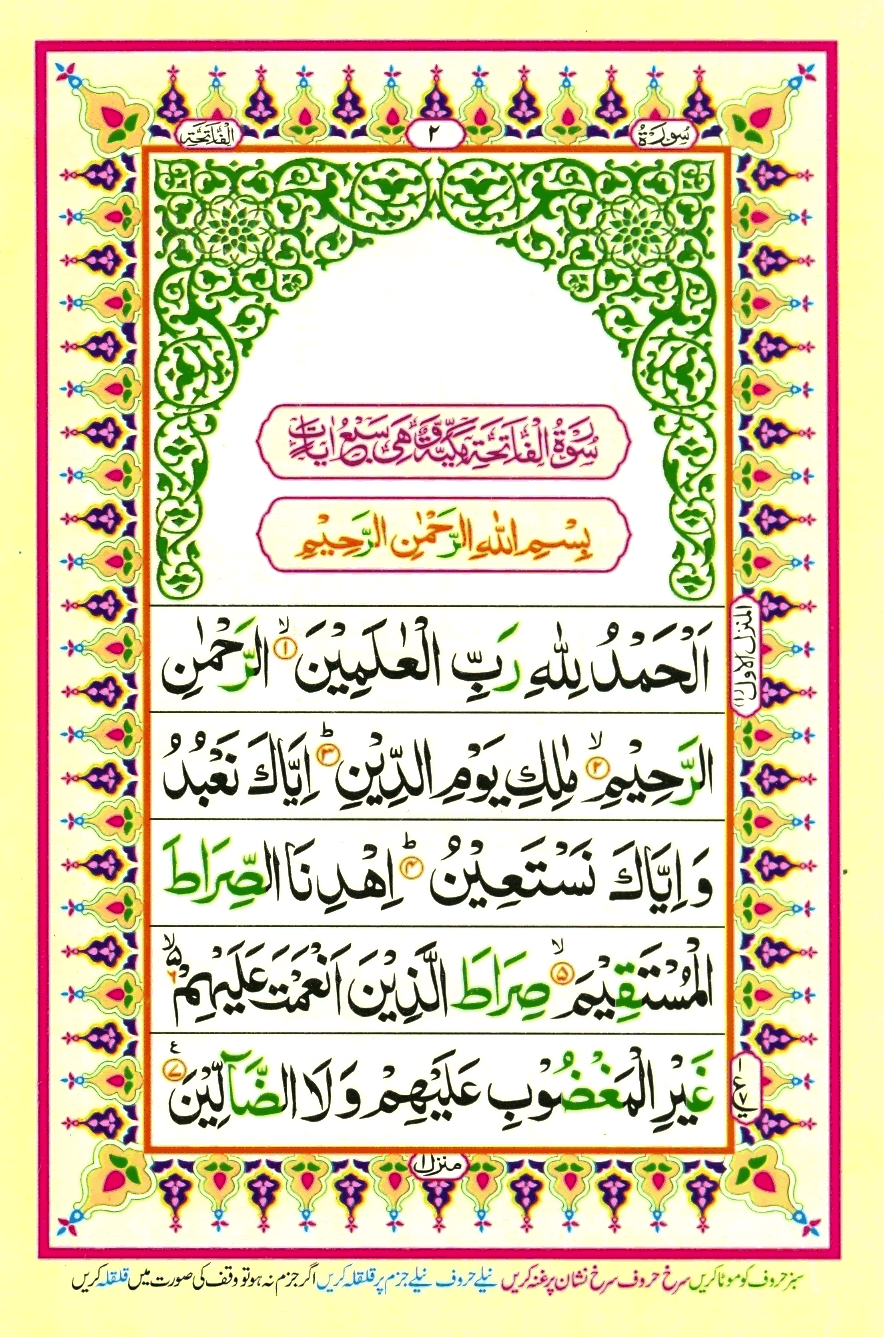 سُورَة
٢
الْفَاتِحَة
سُوْرَةُ الْفَاتِحَةِ مَكِّيَّةٌ وَّهِىَ سَبْعُ اٰيَاتٍ
بِسْمِ اللّٰهِ الرَّحْمٰنِ الرَّحِيْمِ
اَلْحَمْدُ لِلّٰهِ رَبِّ الْعٰلَمِيْنَ ۙ‏﴿۱﴾ الرَّحْمٰنِ
الرَّحِيْمِ ۙ‏﴿۲﴾ مٰلِكِ يَوْمِ الدِّيْنِ ؕ‏﴿۳﴾ اِيَّاكَ نَعْبُدُ
وَاِيَّاكَ نَسْتَعِيْنُ ؕ‏﴿۴﴾ اِهْدِنَا الصِّرَاطَ
الْمُسْتَقِيْمَ ۙ‏﴿۵﴾ صِرَاطَ الَّذِيْنَ اَنْعَمْتَ عَلَيْهِمْ ۙ۵ ۶
غَيْرِ الْمَغْضُوْبِ عَلَيْهِمْ وَلَا الضَّآلِّيْنَ ﴿۷﴾ ع
المنزل الاول ﴿۱﴾
منزل ۱
سبز حروف کو موٹا کریں سرخ حروف سرخ نشان پر غنہ کریں نیلے حروف نیلے جزم پر قلقلہ کریں اگر جزم نہ ہو تو وقف کی صورت میں قلقلہ کریں